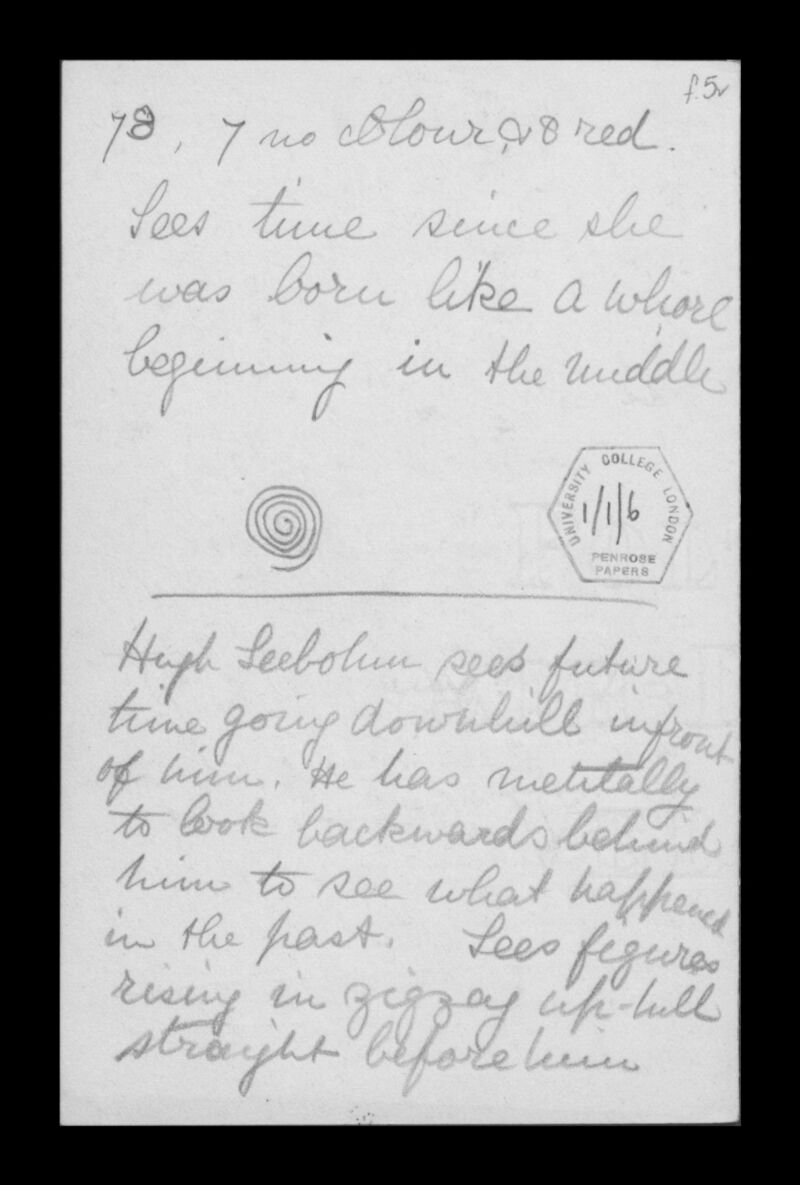 f.5v
78, 7 no colour, & 8 red.
Sees time since she
was born like a whorl
beginning in the middle
UNIVERSITY COLLEGE LONDON
1/1/6
PENROSE
PAPERS
Hugh Seebohm sees future
time going downhill infront
of him. He has mentally
to look backwards behind
him to see what happened
in the past. Sees figures
rising in zigzag up-hill
straight before him